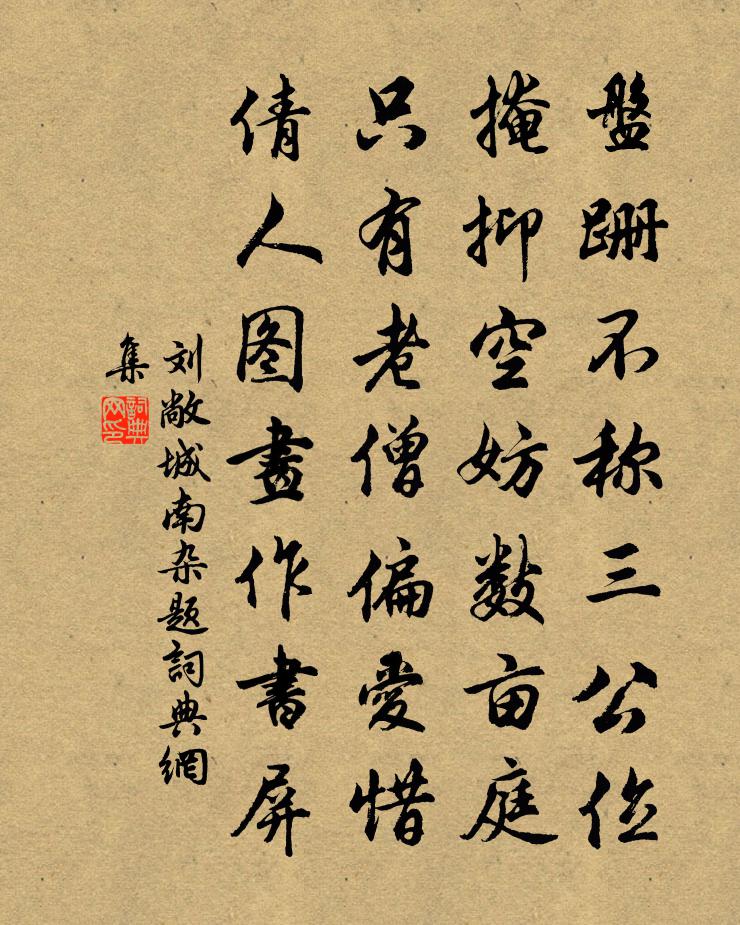 盤跚不称三公位
掩抑空妨数亩庭
只有老僧偏愛惜
倩人图畫作書屏
刘敞城南杂题詞典網
集
詞典
网印